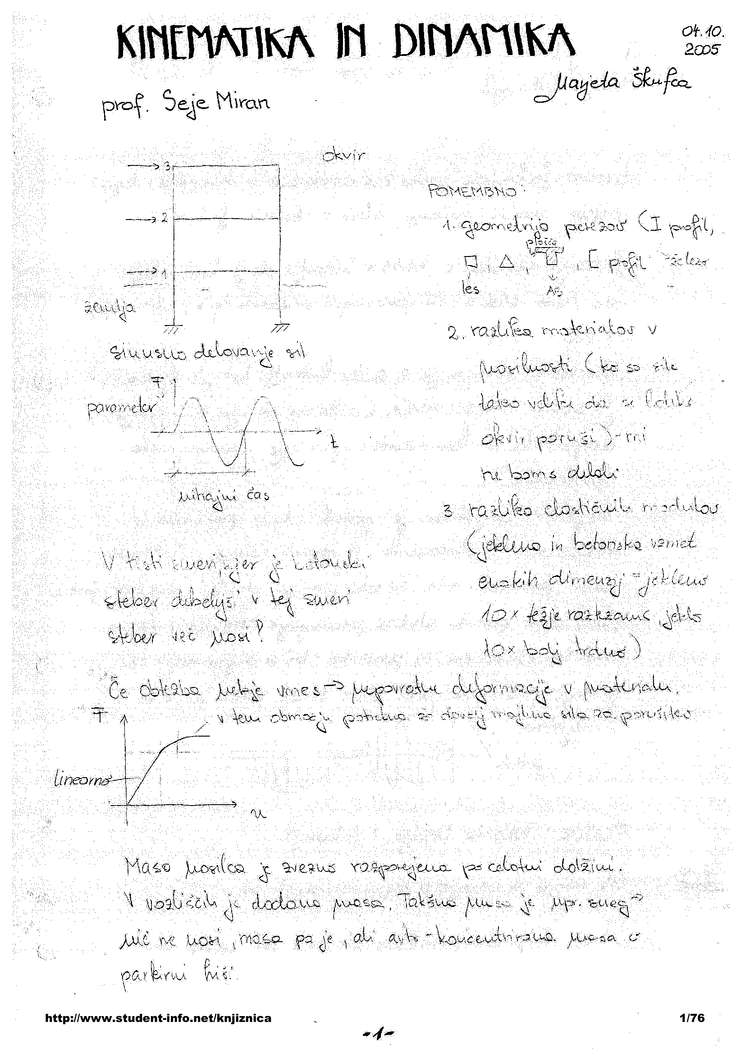 KINEMATIKA IN DINAMIKA
04.10.
2005
Marjeta Škufca
prof. Seje Miran
okvir
3
2
1
zemlja
sinusno delovanje sil
F
parameter
t
nihajni čas
V tisti smeri, kjer je betonski
steber debelejši v tej smeri
steber več nosi!
POMEMBNO:
1. geometrija prerezov (I profil,
plošča
[ profil železo
les
AB
2. razlika materialov v
nosilnosti (ko so sile
tako velike da se lahko
okvir poruši) - mi
ne bomo delali
3 razlika elastičnih modulov
(jeklena in betonska vzmet
enakih dimenzij = jekleno
10x težje raztezamo, jeklo
10x bolj trdno)
Če obtežba nekje vmes → nepovratne deformacije v materialu.
F
v tem območju potrebna že dovolj majhna sila za porušitev
linearno
u
Masa nosilca je zvezno razporejena po celotni dolžini.
V vozliščih je dodana masa. Takšna masa je npr. sneg →
nič ne nosi, masa pa je, ali avto - koncentrirana masa v
parkirni hiši
http://www.student-info.net/knjiznica
1/76
-1-